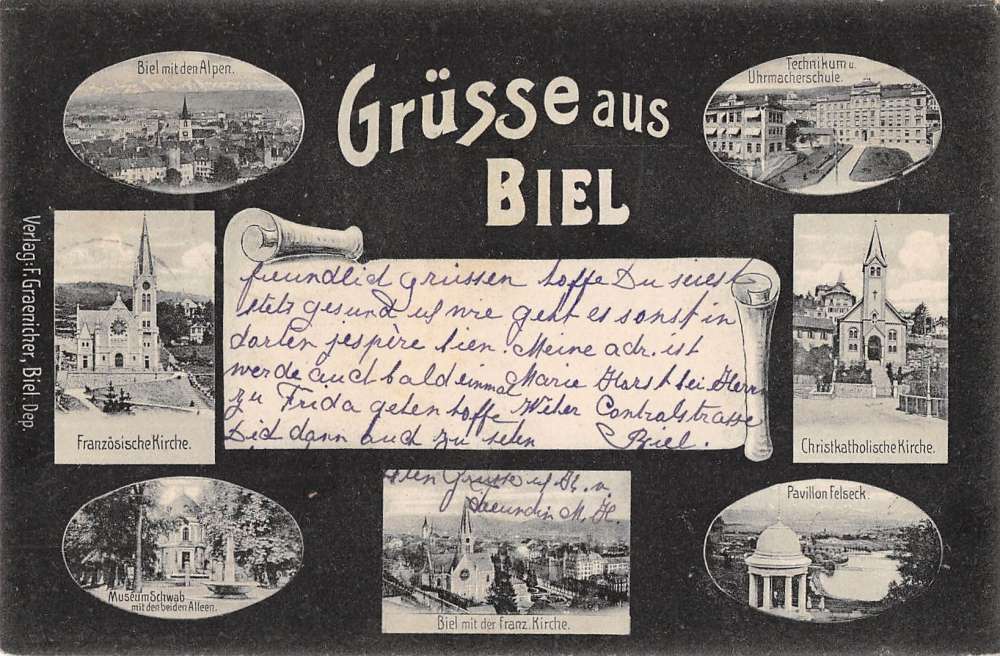 Biel mit den Alpen.
Grüsse aus
BIEL
Technikum u.
Uhrmacherschule.
Verlag: F. Graenicher, Biel. Dep.
Französische Kirche.
freundlich grüssen hoffe Du seiest
stets gesund u wie geht es sonst in
dorten j'espère bien. Meine adr. ist
werde auch bald einmal Marie Horst bei Herrn
zu Frida gehen hoffe Weber Centralstrasse
Dich dann auch zu sehen Biel.
Christkatholische Kirche.
Grüsse
Freundin M. H.
Museum Schwab
mit den beiden Alleen.
Biel mit der Franz. Kirche.
Pavillon Felseck.